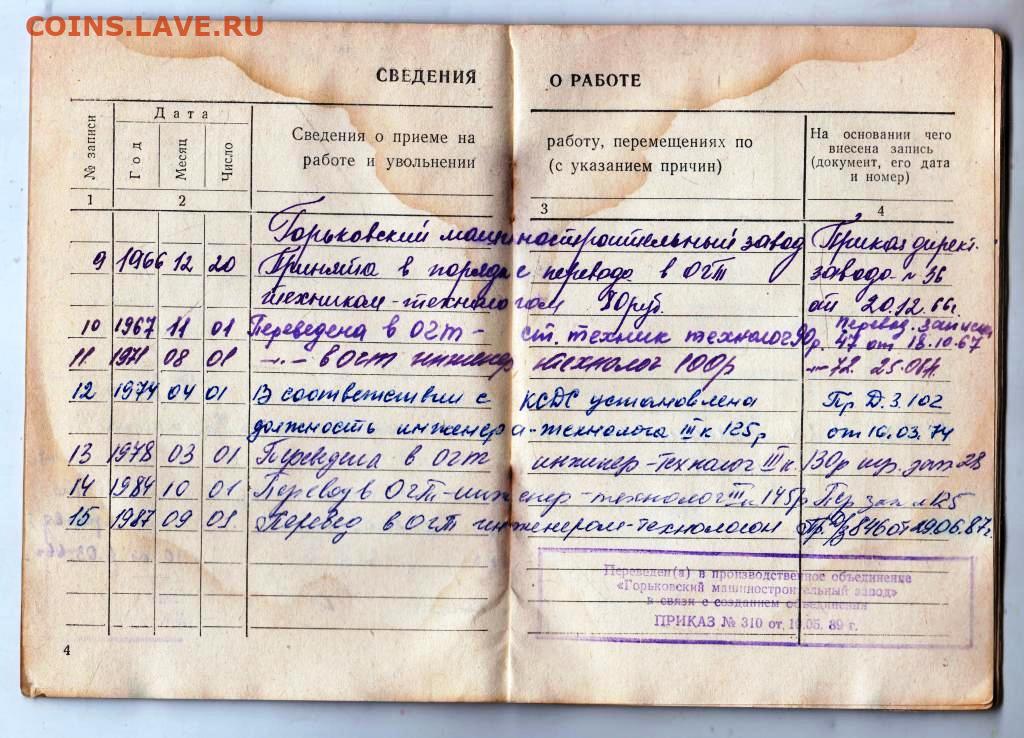 COINS.LAVE.RU
СВЕДЕНИЯ О РАБОТЕ
№ записи
Дата
Год
Месяц
Число
Сведения о приеме на работу, перемещениях по
работе и увольнении (с указанием причин)
На основании чего
внесена запись
(документ, его дата
и номер)
1 2 3 4
Горьковский машиностроительный завод Приказ директ.
9 1966 12 20 Принята в порядке перевода в ОГТ завода № 36
техником-технологом 70руб. от 20.12.66г.
10 1967 11 01 Переведена в ОГТ - ст. техник технолог 90р. 47 от 18.10.67
11 1971 08 01 -"- в ОГТ инженер технолог 100р -"- 72
12 1974 04 01 В соответствии с КСДС установлена Пр Д.3.102
должность инженера-технолога III к 125р от 16.03.74
13 1978 03 01 Переведена в ОГТ инжинер-технолог III к. 130р
14 1984 10 01 Перевод в ОГТ-инженер-технолог III к 145р
15 1987 09 01 Перевед в ОГТ инженером-технологом Пр. 846 от 29.06.87г.
Переведен(а) в производственное объединение
«Горьковский машиностроительный завод»
в связи с созданием объединения
ПРИКАЗ № 310 от 10.05. 89 г.
4